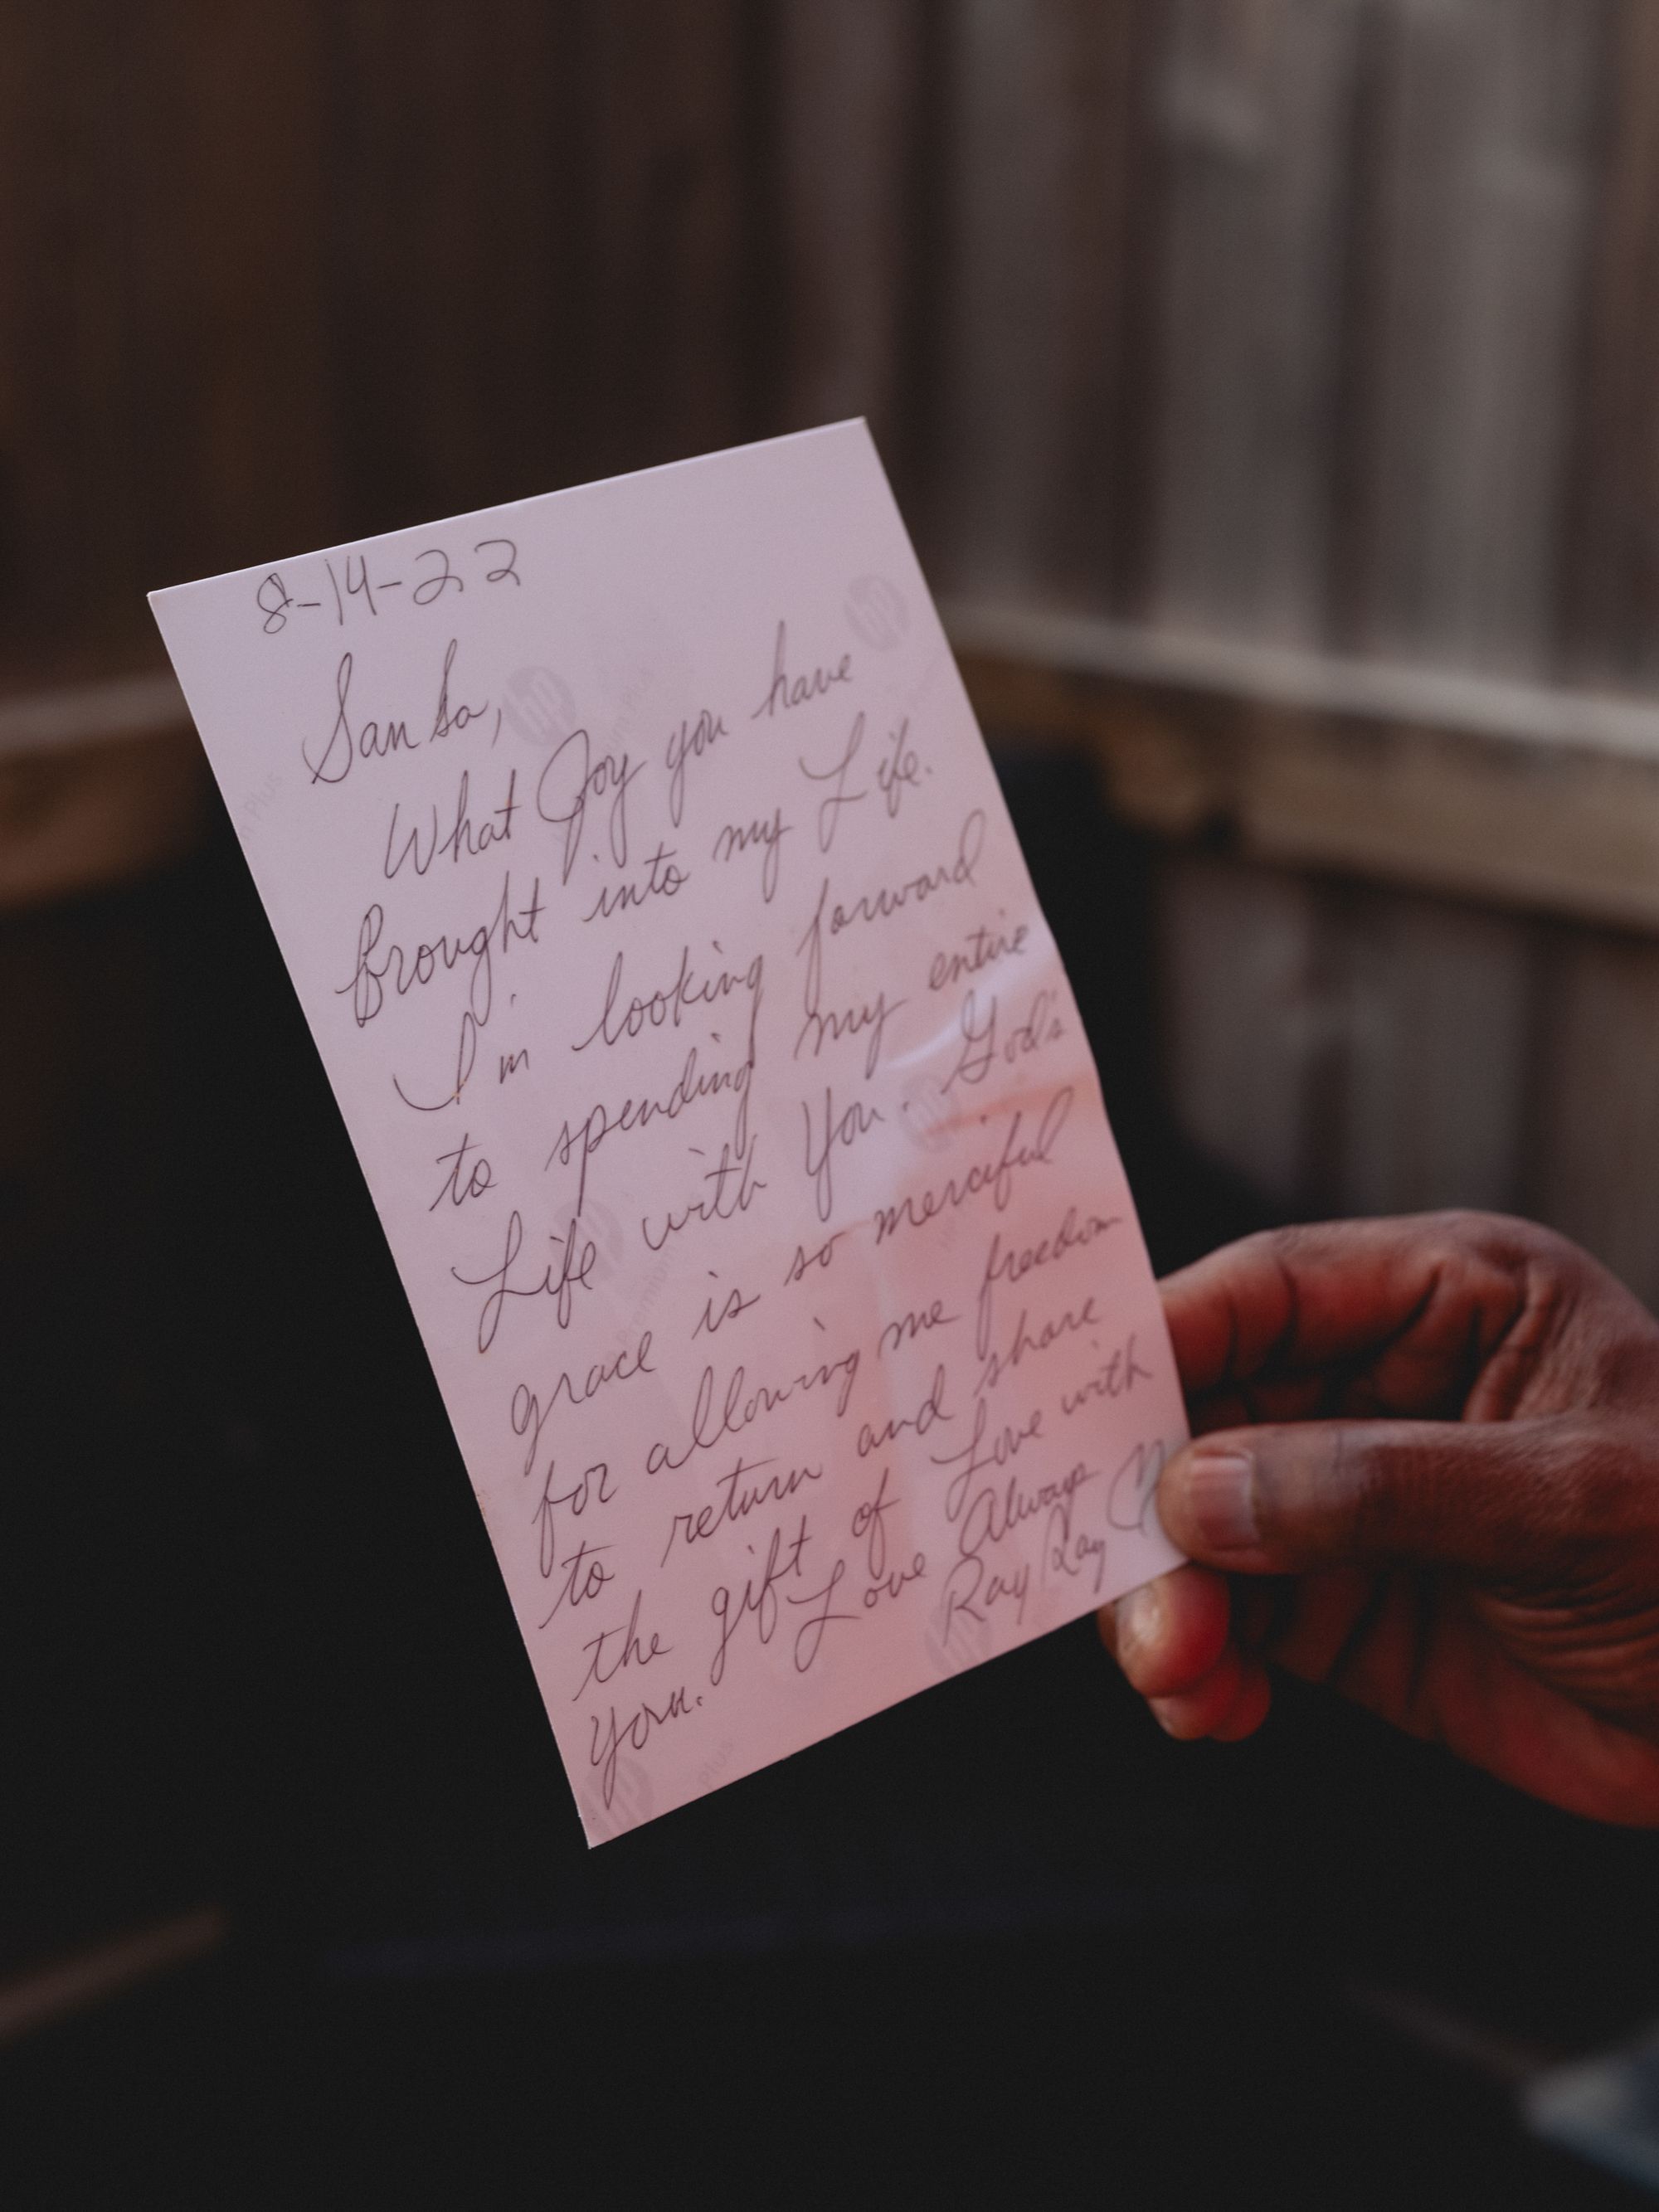 8-14-22
What Joy you have
brought into my Life.
I'm looking forward
to spending my entire
Life with You. God's
grace is so merciful
for allowing me freedom
to return and share
the gift of Love with
you.
Love Always
Ray Ray
hp
hp
hp
hp
hp
hp
Plus
Plus